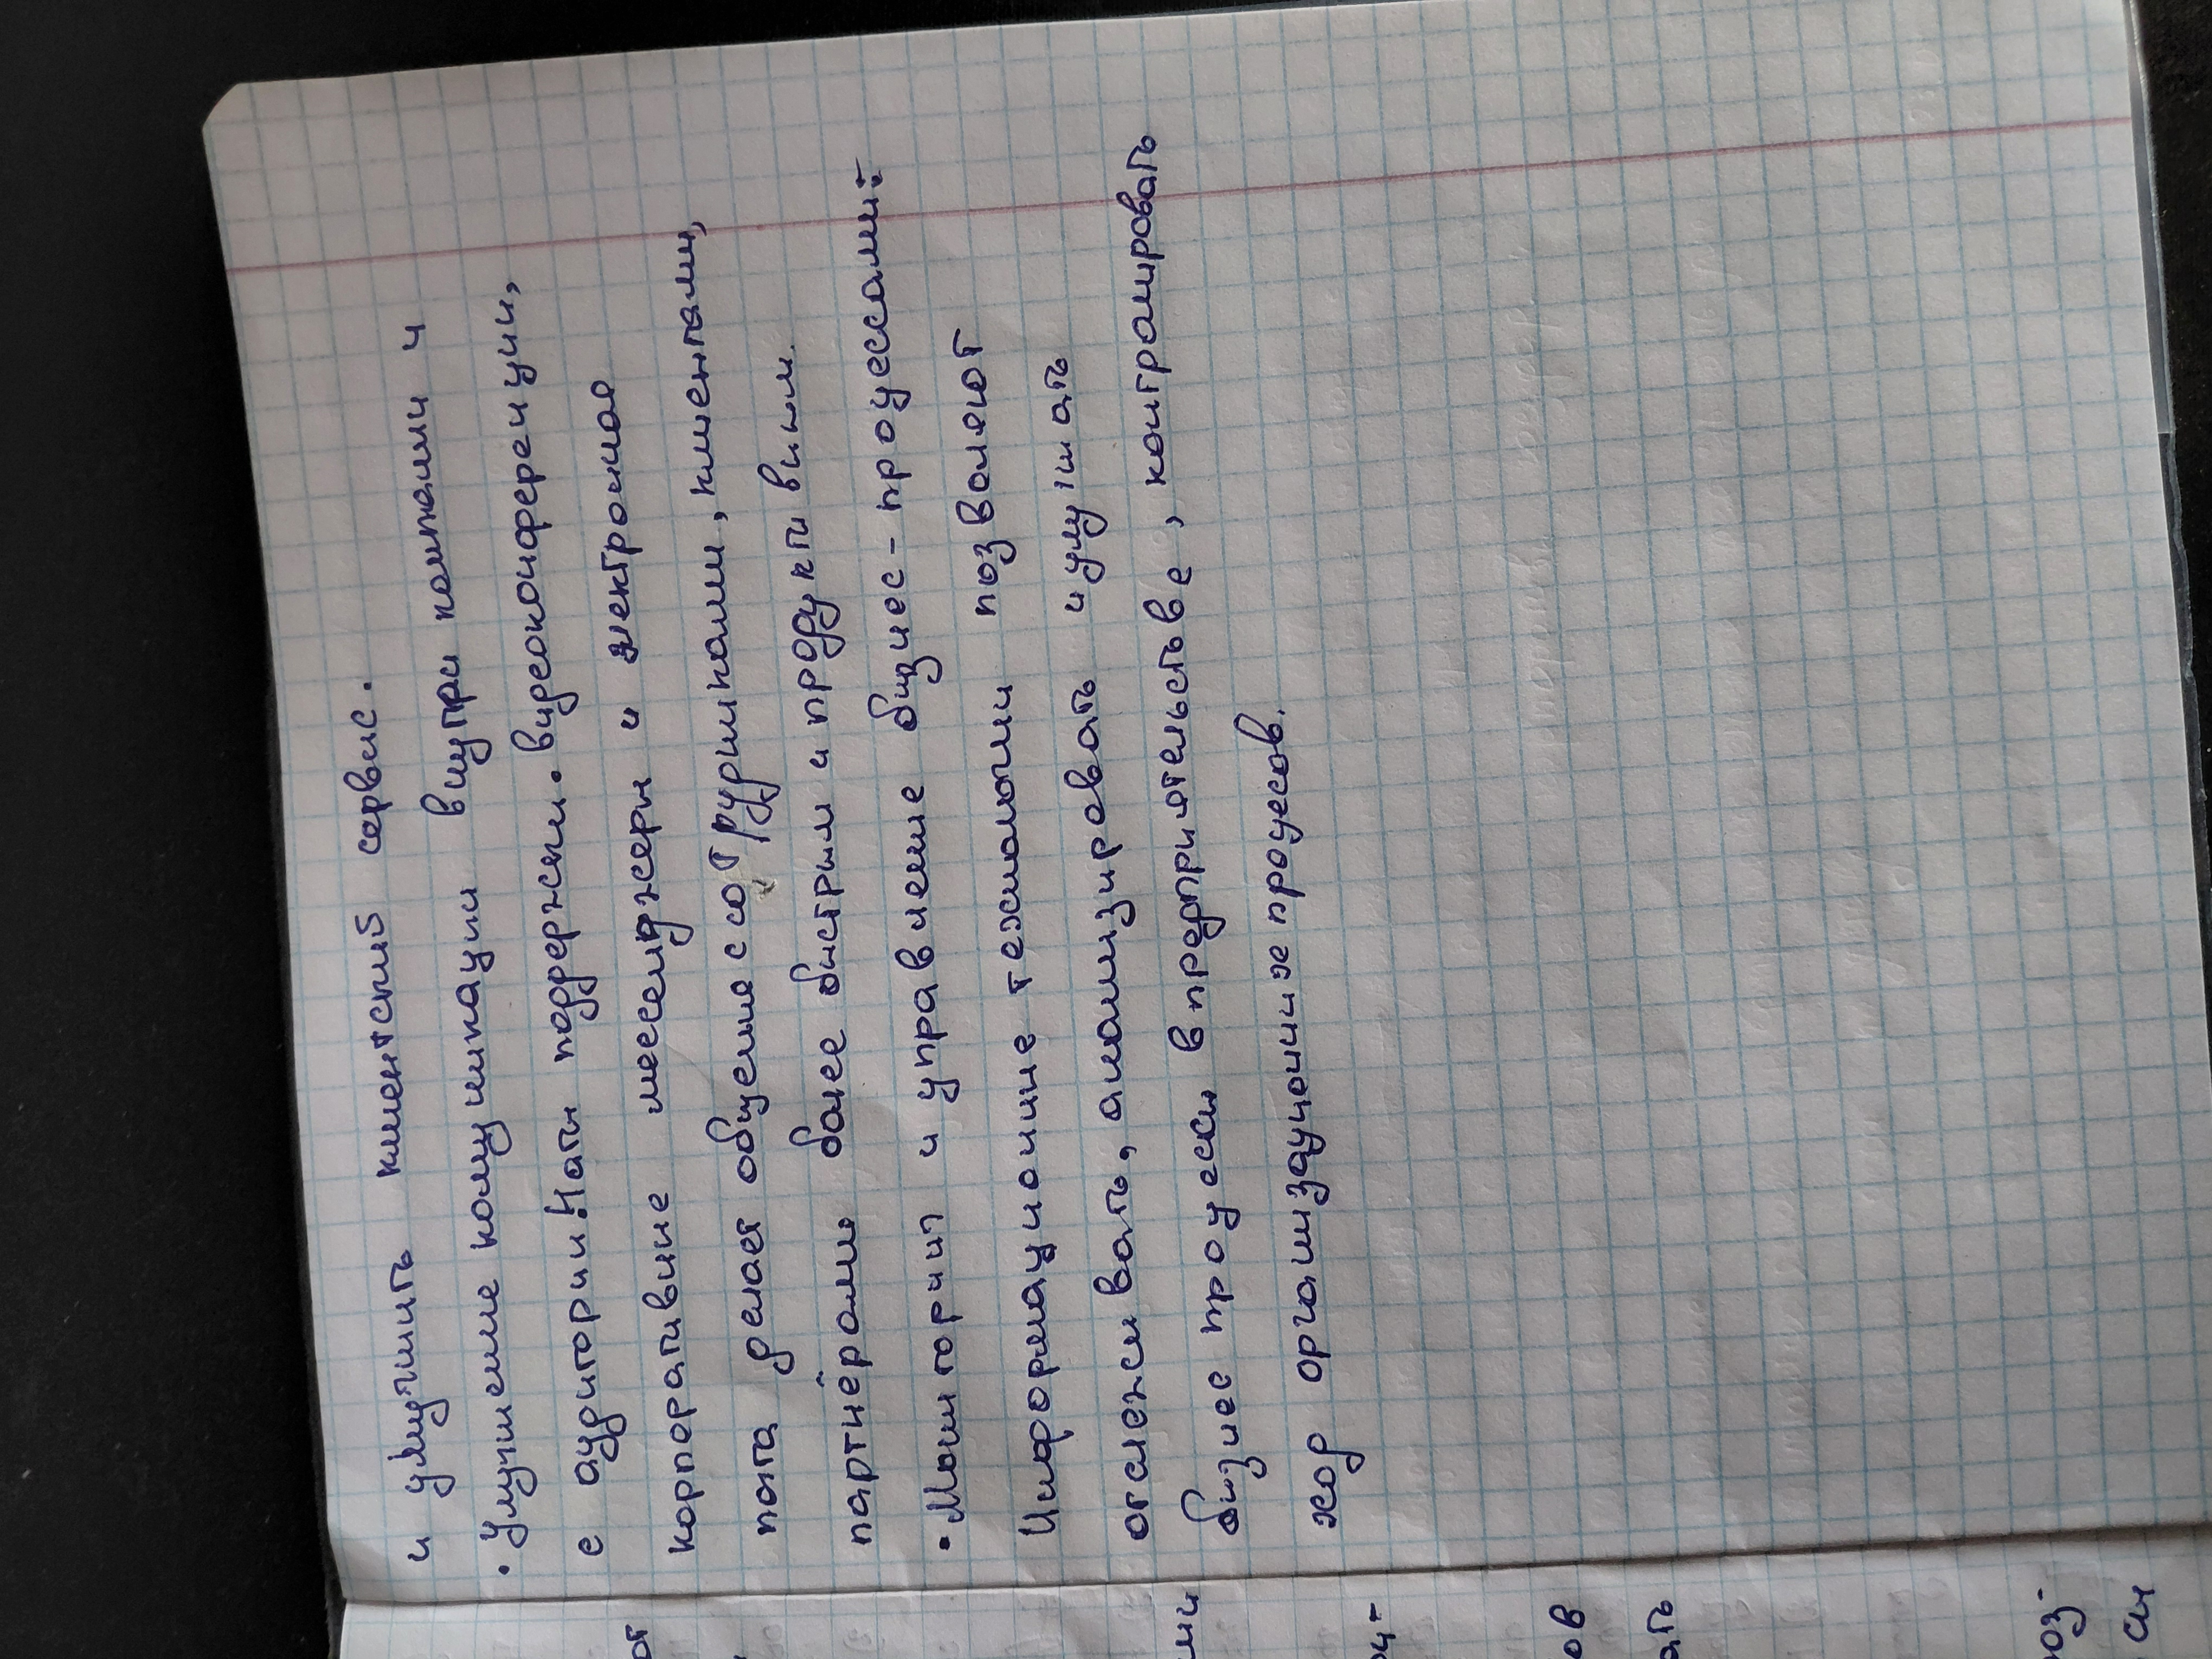 и улучшить клиентский сервис.
• Улучшение комуникации внутри компании и
с аудитории. Чаты поддержки. видеоконференции,
корперативные мессенджеры и электронная
почта делает общение с сотрудниками, клиентами,
партнёрами более быстрым и продуктивным.
• Мониторинг и управление бизнес-процессами:
Информационные технологии позволяют
отслеживать, анализировать и улучшать
бизнес процессы в предприятельстве, контролировать
ход организационных процессов.